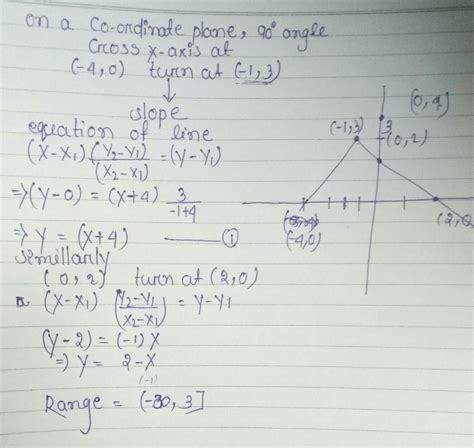 on a Co-ordinate plane, 90° angle
Cross x-axis at
(-4,0) turn at (-1,3)
↓
slope
equation of line
(X-X₁) (Y₂-Y₁)/(X₂-X₁) = (Y-Y₁)
⇒(Y-0) = (X+4) 3/(-1+4)
⇒ Y = (X+4) —— ①
Simillarly
(0,2) turn at (2,0)
(X-X₁) (Y₂-Y₁)/(X₂-X₁) = Y-Y₁
(Y-2) = (-1) X
⇒ Y = 2-X
(-1)
Range = (-∞, 3]
(0,4)
(-1,3)
3
(0,2)
(2,0
(-4,0)